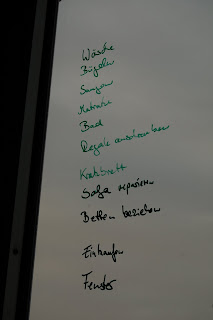 Wäsche
Bügeln
Saugen
Matratze
Bad
Regale anschrauben
Korkbrett
Sofa reparieren
Betten beziehen
Einkaufen
Fenster